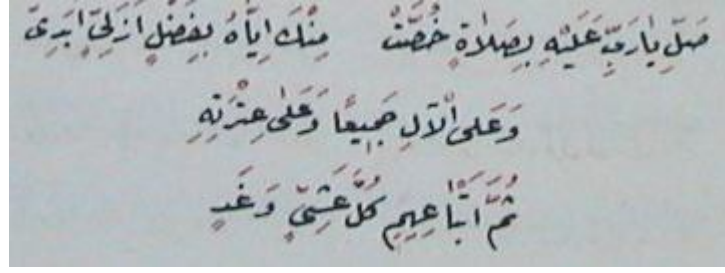 صَلِّ يَارَبِّ عَلَيْهِ بِصَلَاةٍ خُصَّتْ مِنْكَ اِيَّاهُ بِفَضْلٍ اَزَلِىٍّ اَبَدِىٍّ
وَعَلَى الْآلِ جَمِيعًا وَعَلٰى عِتْرَتِهِ
ثُمَّ اَتْبَاعِهِمِ كُلَّ عَشِىٍّ وَغَدٍ